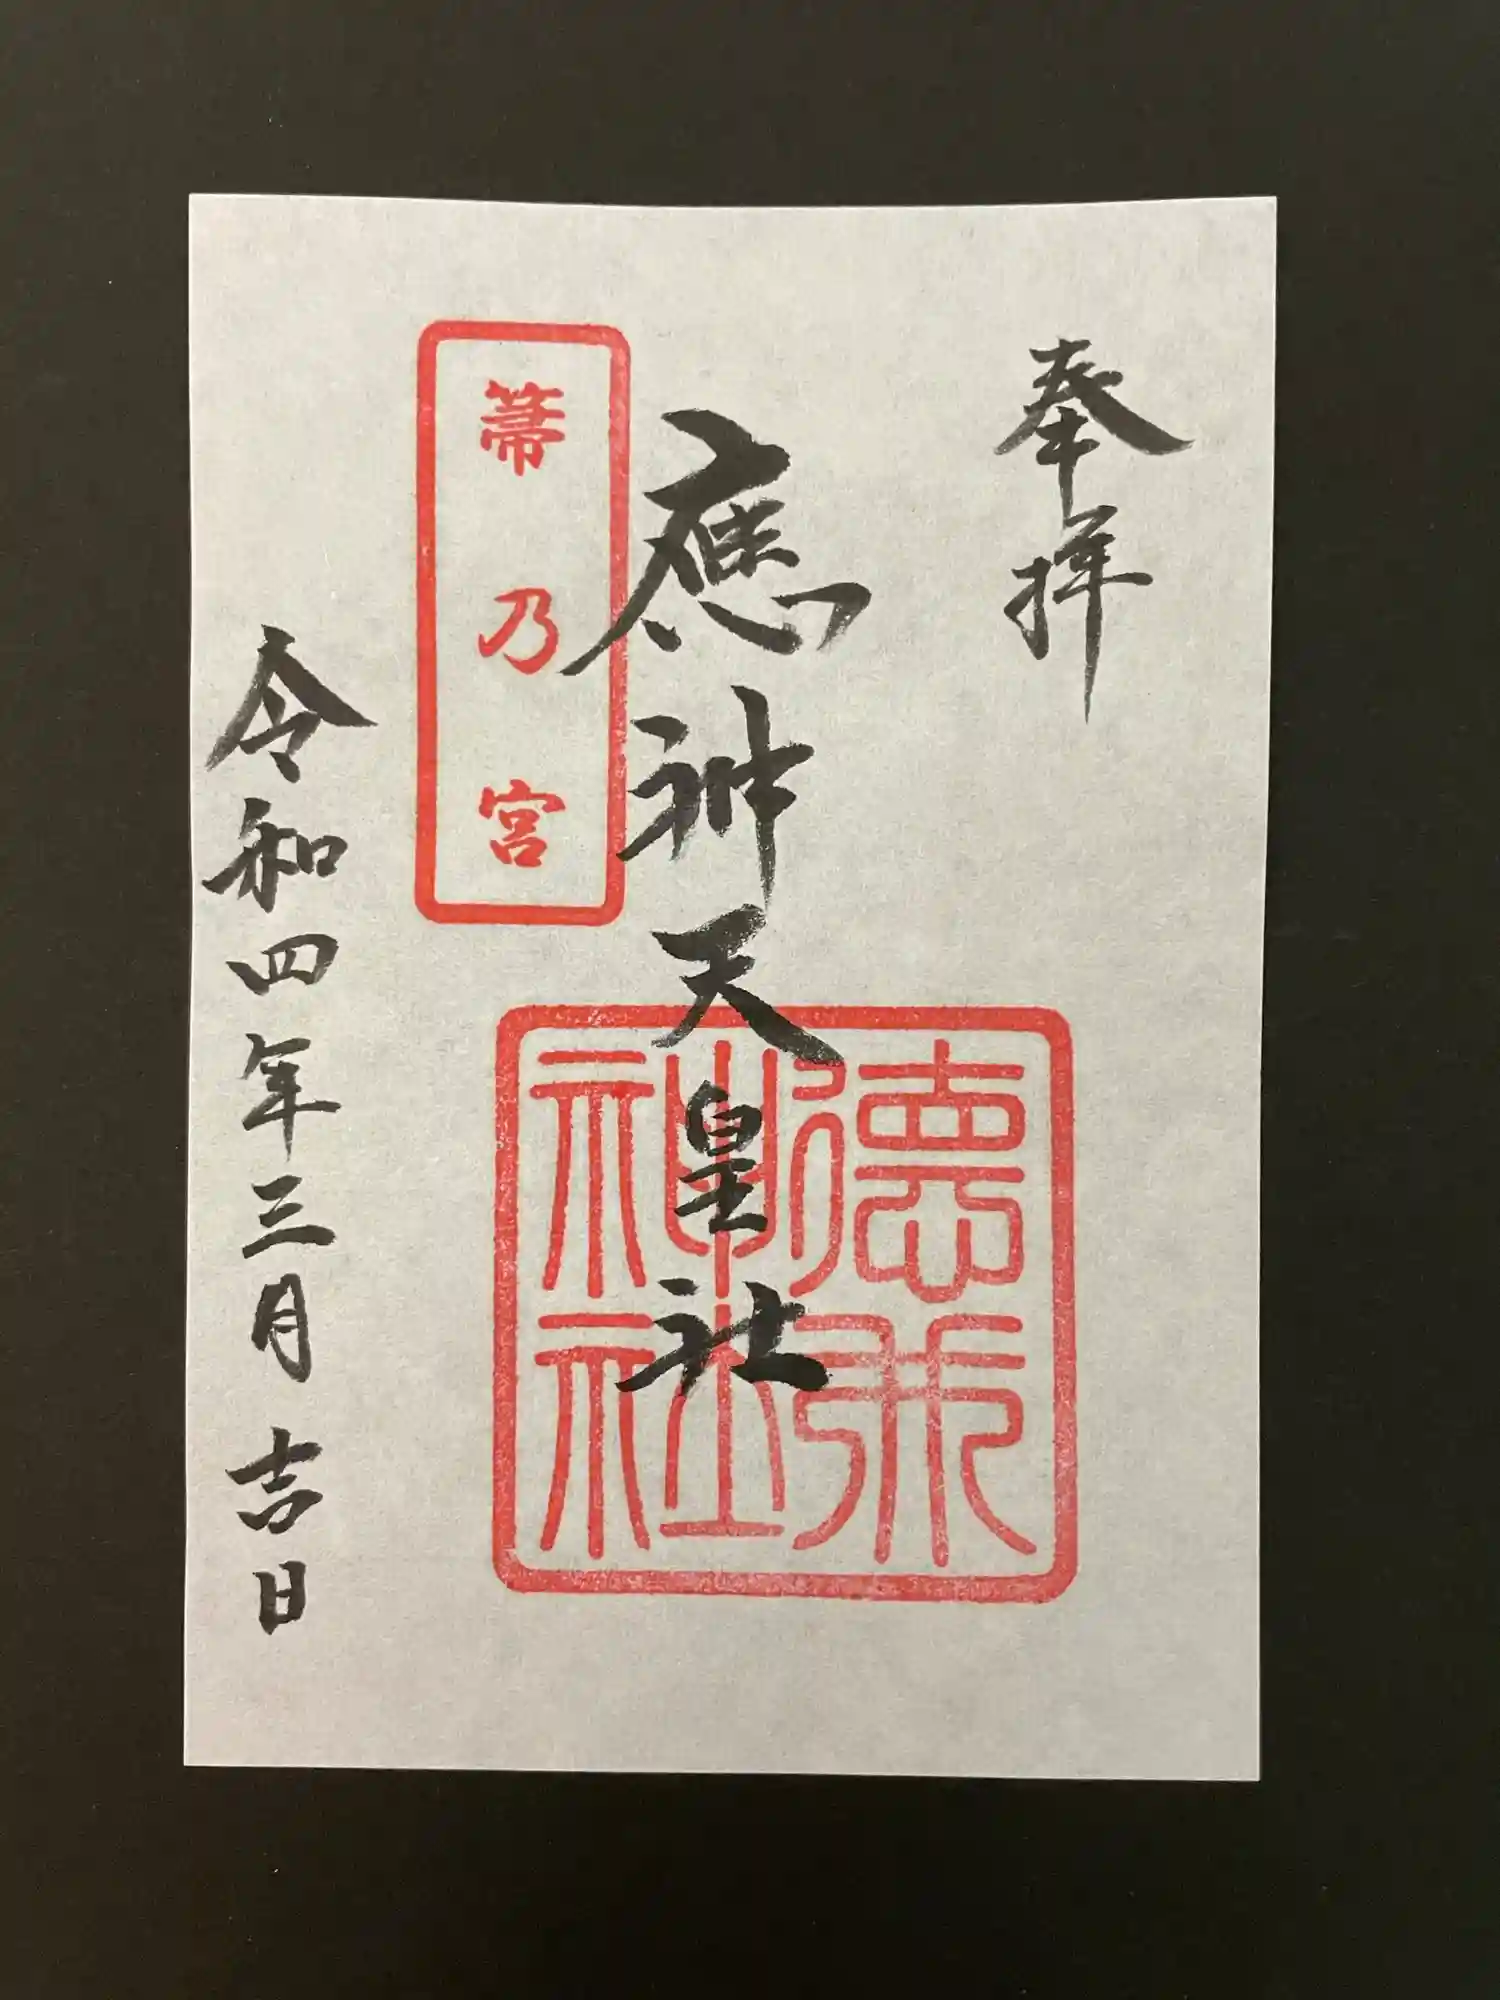 奉拝
應神天皇社
箒乃宮
令和四年三月吉日
神社